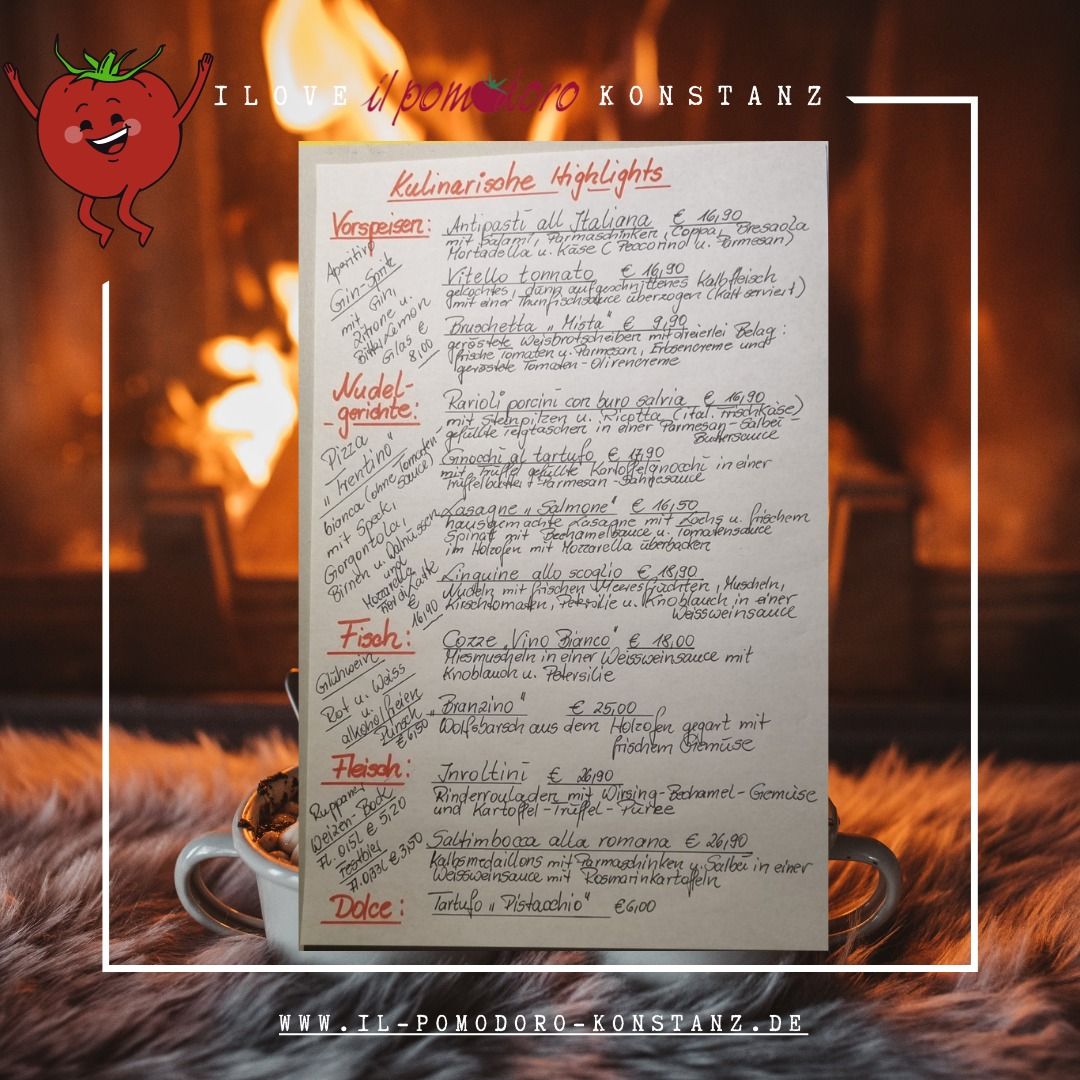 I LOVE il pomodoro KONSTANZ
Kulinarische Highlights
Vorspeisen:
Antipasti all Italiana € 16,90
mit Salami, Parmaschinken, Coppa, Bresaola
Mortadella u. Käse (Peccorino u. Parmesan)
Vitello tonnato € 16,90
gekochtes, dann aufgeschnittenes Kalbfleisch
mit einer Thunfischsauce überzogen (kalt serviert)
Bruschetta „Mista" € 9,90
geröstete Weisbrotscheiben mit dreierlei Belag:
frische Tomaten u. Parmesan, Erbsencreme und
geröstete Tomaten-Olivencreme
Aperitivo
Gin-Spritz
mit Gin,
Zitrone u.
Bitter Lemon
Glas €
8,00
Nudel-
-gerichte:
Ravioli porcini con buro salvia € 16,90
mit Steinpilzen u. Ricotta (ital. Frischkäse)
gefüllte Teigtaschen in einer Parmesan-Salbei-
Buttersauce
Gnocchi al tartufo € 17,90
mit Trüffel gefüllte Kartoffelgnocchi in einer
Trüffelbutter + Parmesan-Sahnesauce
Lasagne „Salmone" € 16,50
hausgemachte Lasagne mit Lachs u. frischem
Spinat mit Bechamelsauce u. Tomatensauce
im Holzofen mit Mozzarella überbacken
Linguine allo scoglio € 18,90
Nudeln mit frischen Meeresfrüchten, Muscheln,
Kirschtomaten, Petersilie u. Knoblauch in einer
Weissweinsauce
Pizza
„Trentino"
bianca (ohne Tomaten-
sauce)
mit Speck,
Gorgontola,
Birnen u. Walnüssen
und
Mozzarella
Fior di Latte
€
16,90
Fisch:
Cozze „Vino Bianco" € 18,00
Miesmuscheln in einer Weissweinsauce mit
Knoblauch u. Petersilie
„Branzino" € 25,00
Wolfsbarsch aus dem Holzofen gegart mit
frischem Gemüse
Glühwein
Rot u. Weiss
u.
alkoholfreien
€ 6,50
Fleisch:
Involtini € 26,90
Rinderrouladen mit Wirsing-Bechamel-Gemüse
und Kartoffel-Trüffel-Püree
Saltimbocca alla romana € 26,90
Kalbsmedaillons mit Parmaschinken u. Salbei in einer
Weissweinsauce mit Rosmarinkartoffeln
Ruppaner
Weizen-Bock
Fl. 0,5L € 5,20
Festbier
Fl. 0,33L € 3,50
Dolce:
Tartufo „Pistacchio" € 6,00
WWW.IL-POMODORO-KONSTANZ.DE